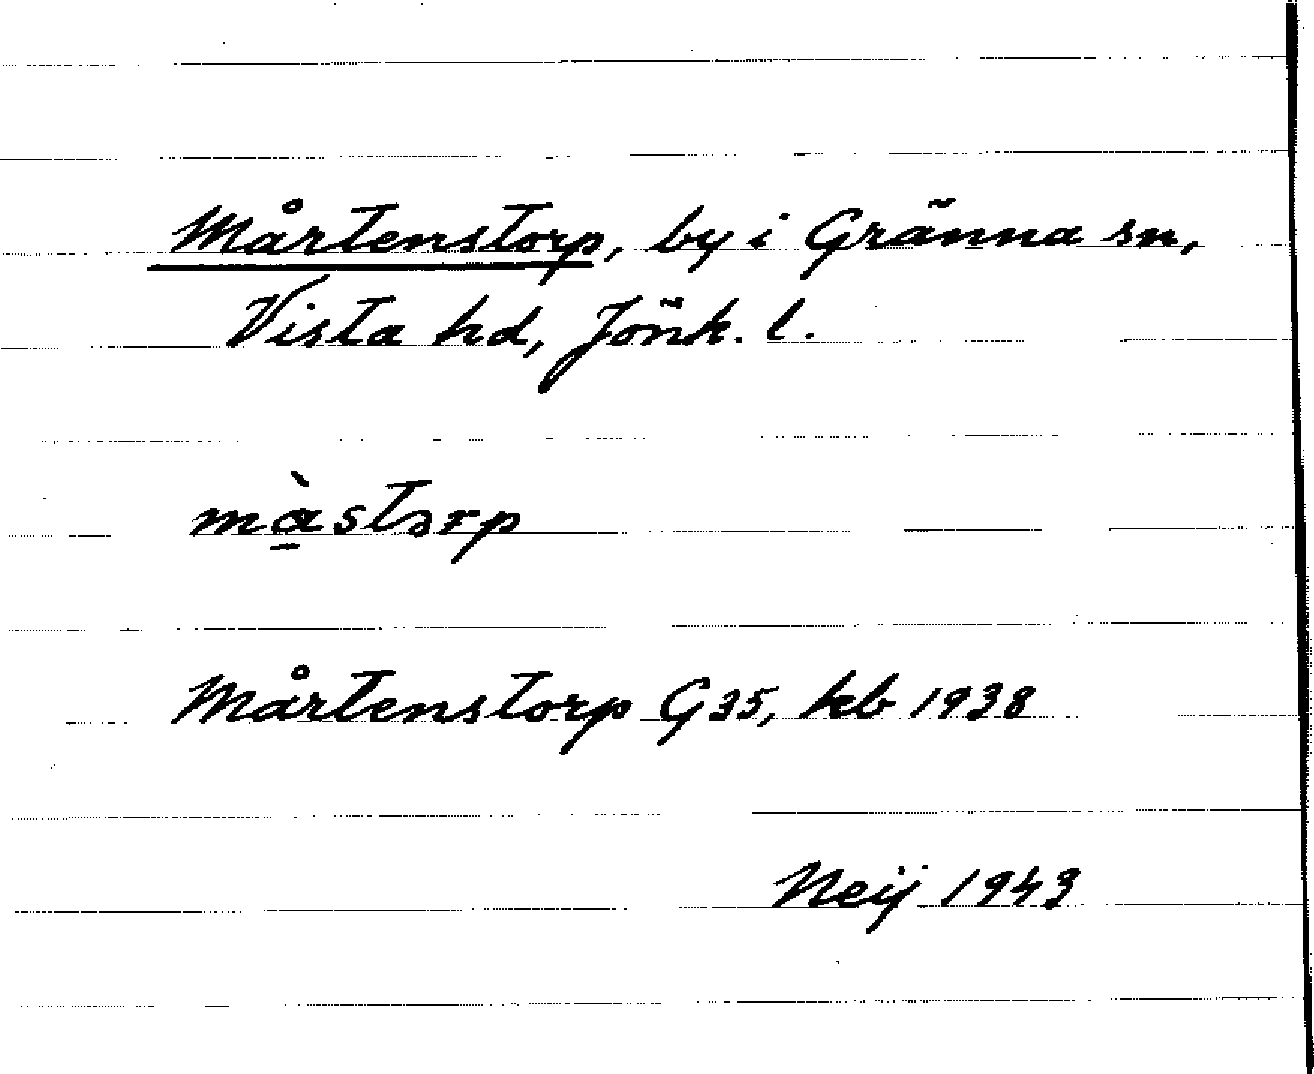 Mårtenstorp, by i Gränna sn,
Vista hd, Jönk. l.
mὰ̠storp
Mårtenstorp G35, kb 1938
Neij 1943